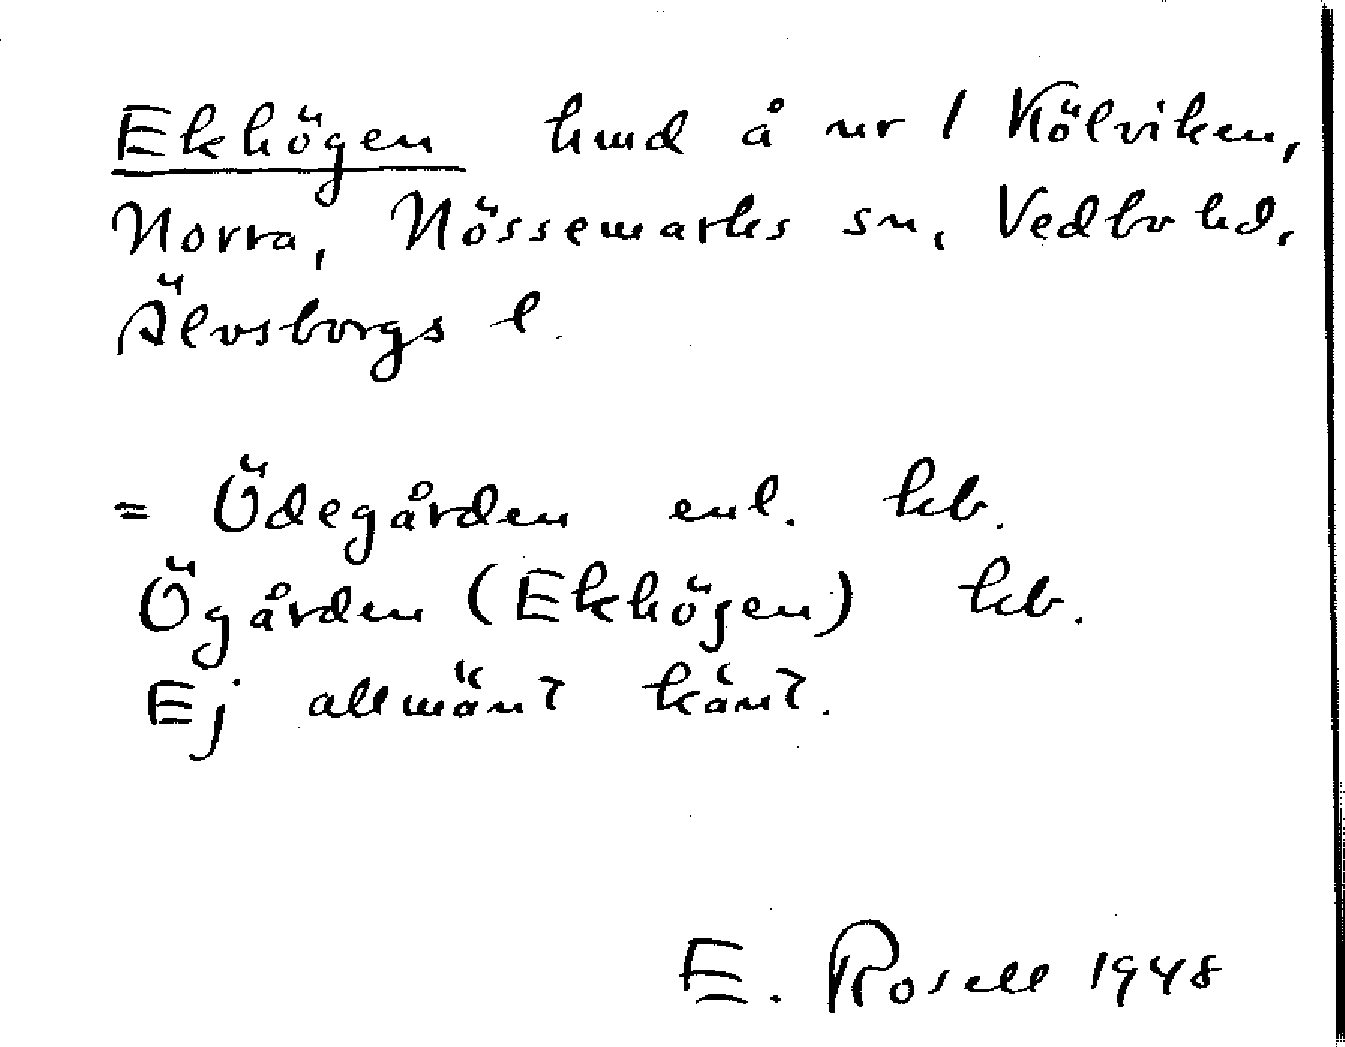 Ekhögen hmd å nr 1 Kölviken,
Norra, Nössemarks sn, Vedbo hd,
Älvsborgs l.
= Ödegården enl. kb.
Ögården (Ekhögen) kb.
Ej allmänt känt.
E. Rosell 1948